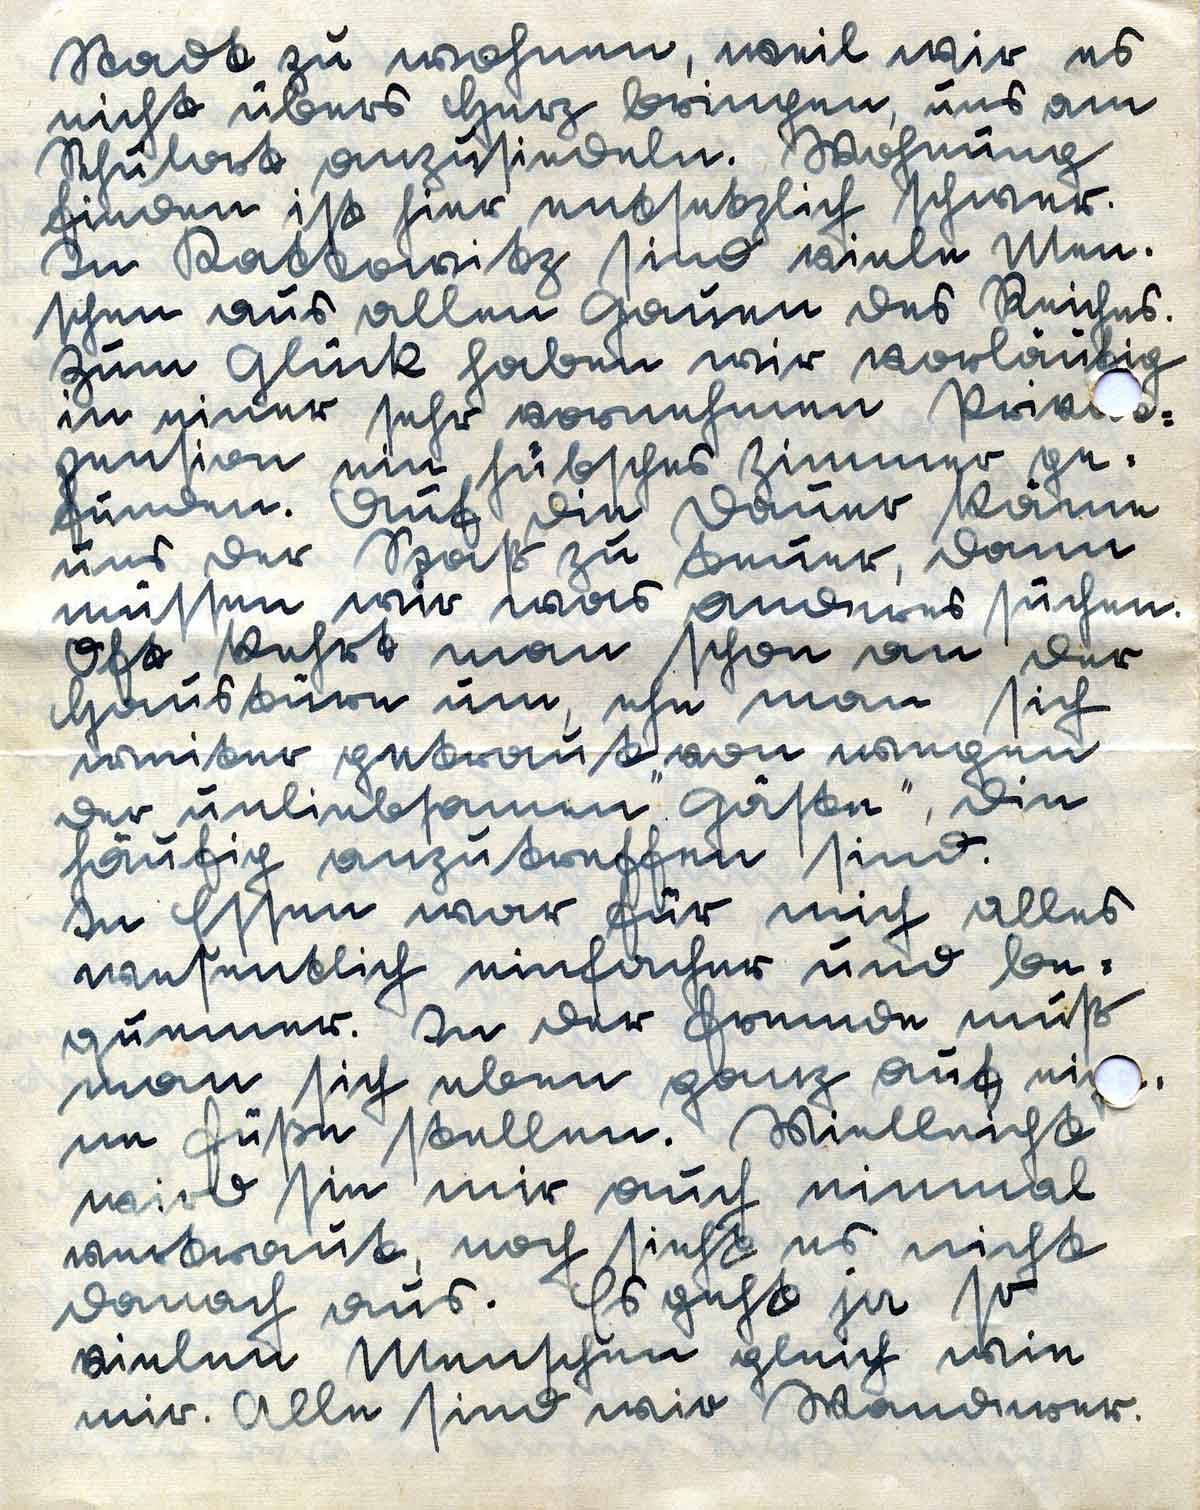 Stadt zu wohnen, weil wir es
nicht übers Herz bringen, uns am
Schulort anzusiedeln. Wohnung
finden ist hier entsetzlich schwer.
In Kattowitz sind viele Men-
schen aus allen Gauen des Reiches.
Zum Glück haben wir vorläufig
in einer sehr vornehmen Privat=
pension ein hübsches Zimmer ge-
funden. Auf die Dauer käme
uns der Spaß zu teuer, dann
müssen wir was anderes suchen.
Oft kehrt man schon an der
Haustüre um, ehe man sich
weiter getraut von wegen
der unliebsamen "Gäste", die
häufig anzutreffen sind.
In Essen war für mich alles
wesentlich einfacher und be-
quemer. In der Fremde muß
man sich eben ganz auf eig-
ne Füße stellen. Vielleicht
wird sie mir auch einmal
vertraut, noch sieht es nicht
danach aus. Es geht ja so
vielen Menschen gleich wie
mir. Alle sind wir Wanderer.